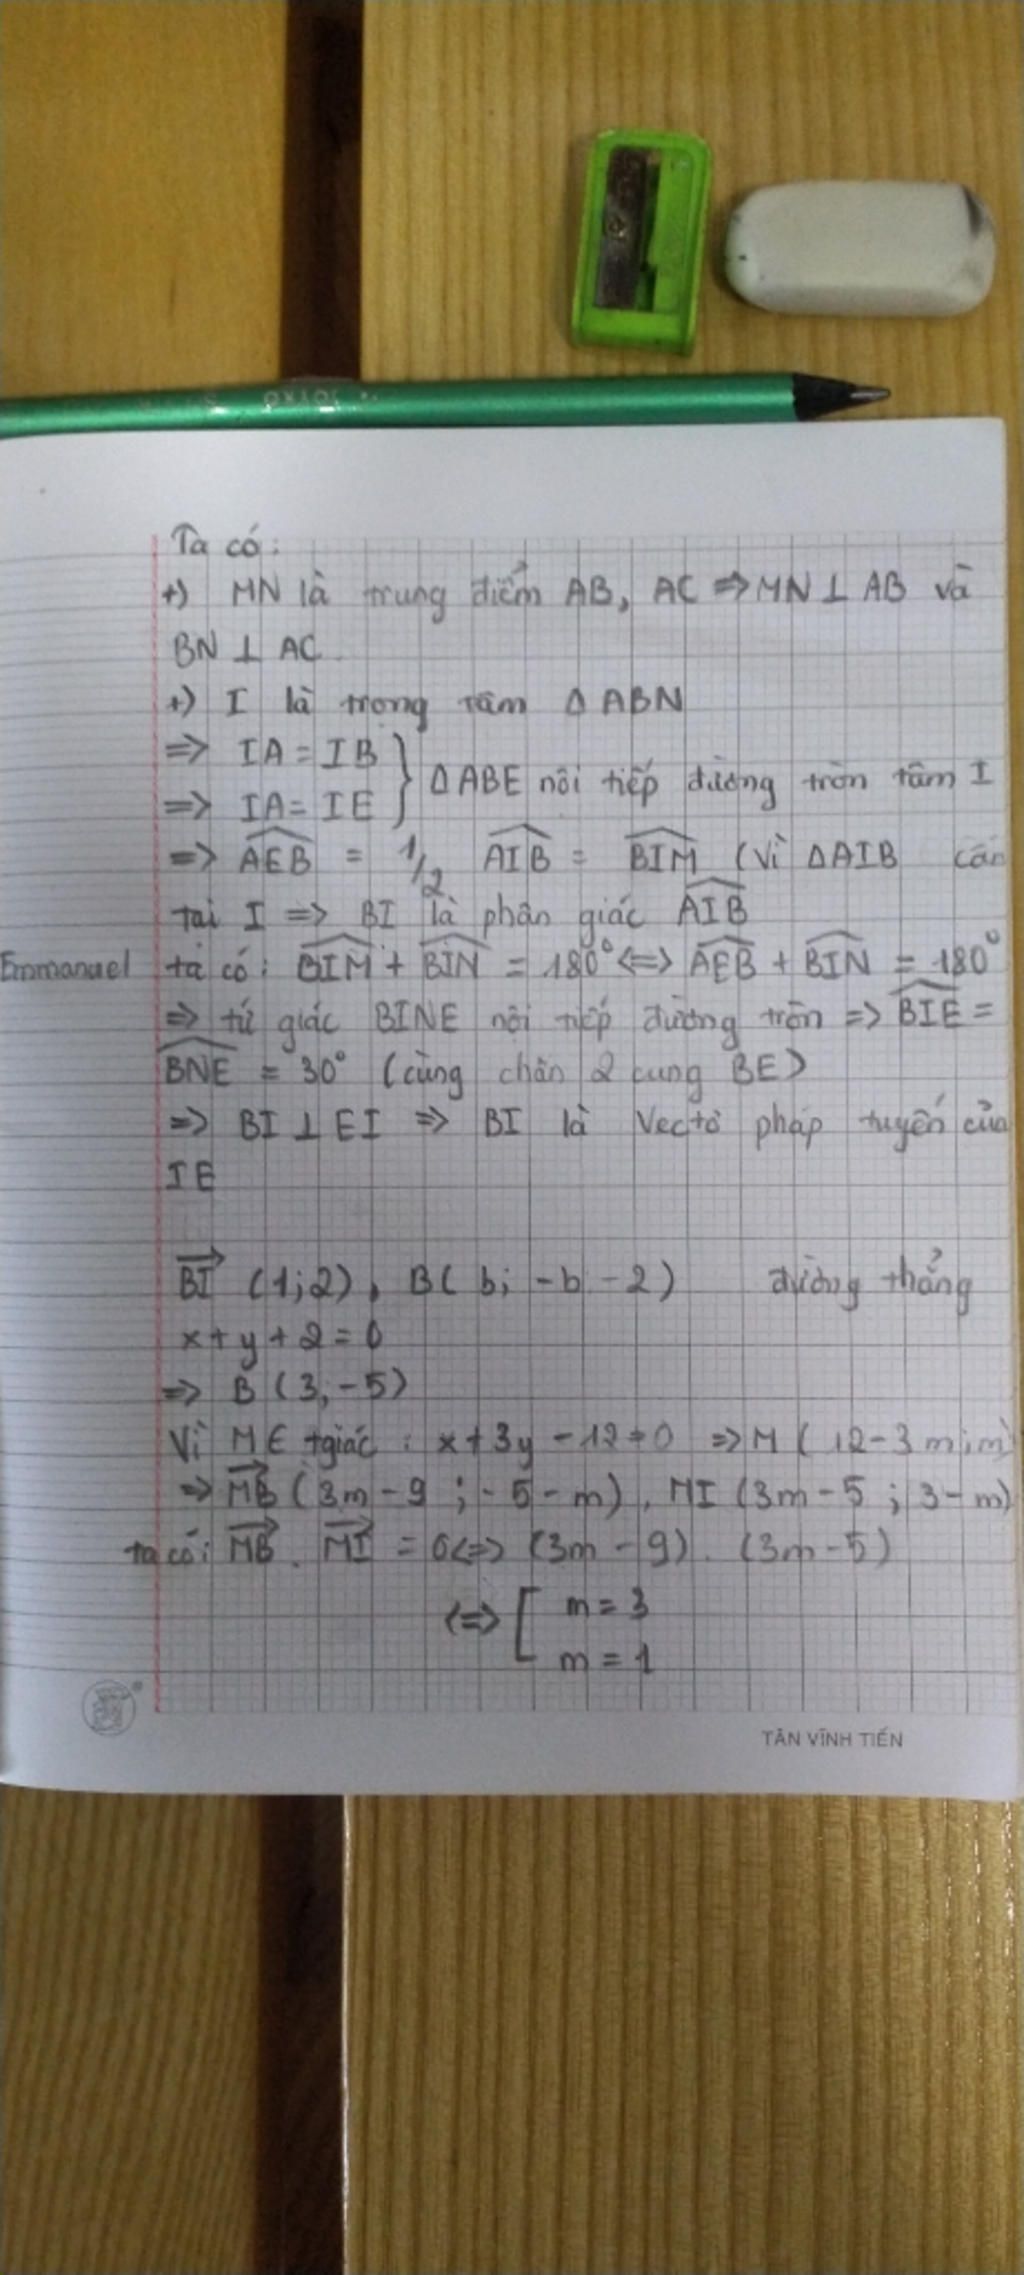 Ta có:
+) MN là trung điểm AB, AC => MN ⊥ AB và
BN ⊥ AC
+) I là trọng tâm Δ ABN
=> IA = IB
=> IA = IE } Δ ABE nội tiếp đường tròn tâm I
=> AEB = 1/2 AIB = BIM (Vì ΔAIB cân
tại I => BI là phân giác AIB
Emmanuel ta có: BIM + BIN = 180° <=> AEB + BIN = 180°
=> tứ giác BINE nội tiếp đường tròn => BIE =
BNE = 30° (cùng chắn 2 cung BE)
=> BI ⊥ EI => BI là Vectơ pháp tuyến của
IE
BI (1;2), B( b; -b - 2) đường thẳng
x + y + 2 = 0
=> B (3,-5)
Vì M ∈ +giác : x + 3y - 12 = 0 => M ( 12 - 3m; m)
=> MB (3m - 9 ; -5 - m), MI (3m - 5 ; 3 - m)
ta có: MB . MI = 0 <=> (3m - 9). (3m - 5)
<=> [ m = 3
m = 1
TÂN VĨNH TIẾN